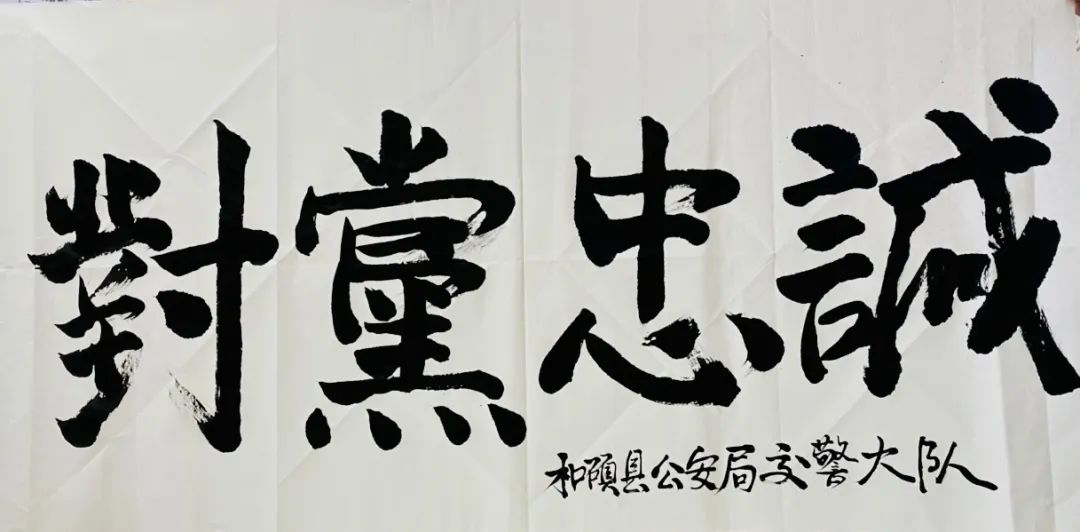 對黨忠誠
和顺县公安局交警大队